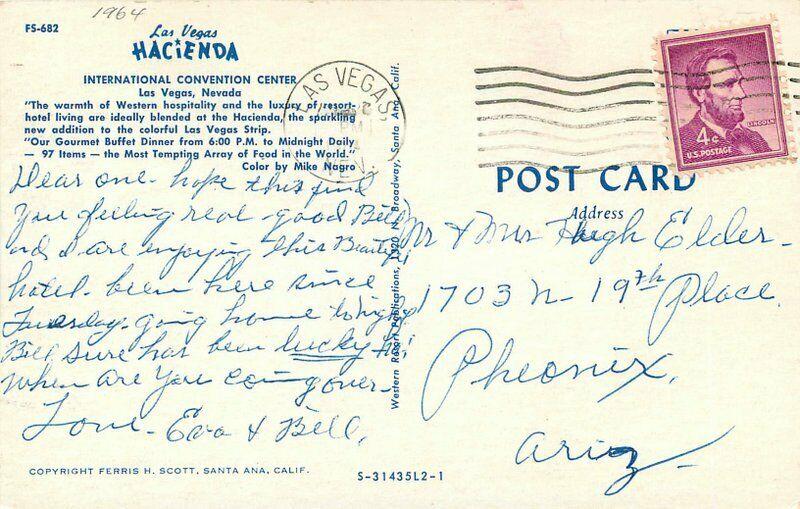 1964
FS-682
Las Vegas
HACIENDA
INTERNATIONAL CONVENTION CENTER
Las Vegas, Nevada
"The warmth of Western hospitality and the luxury of resort-
hotel living are ideally blended at the Hacienda, the sparkling
new addition to the colorful Las Vegas Strip.
"Our Gourmet Buffet Dinner from 6:00 P.M. to Midnight Daily
— 97 Items — the Most Tempting Array of Food in the World."
Color by Mike Nagro
Dear one - hope this find
you feeling real - good Bill
and I are enjoying this Beautiful
hotel - been here since
Tuesday - going home tonight
Bill sure has been lucky ha!
When are you coming over -
Love - Eva & Bill.
COPYRIGHT FERRIS H. SCOTT, SANTA ANA, CALIF.
Western Resort Publications, 1320 N. Broadway, Santa Ana, Calif.
S-31435L2-1
LAS VEGAS,
PM
NEV.
4¢
LINCOLN
U.S. POSTAGE
POST CARD
Address
Mr & Mrs Hugh Elder -
1703 N - 19th Place.
Pheonix,
Ariz -